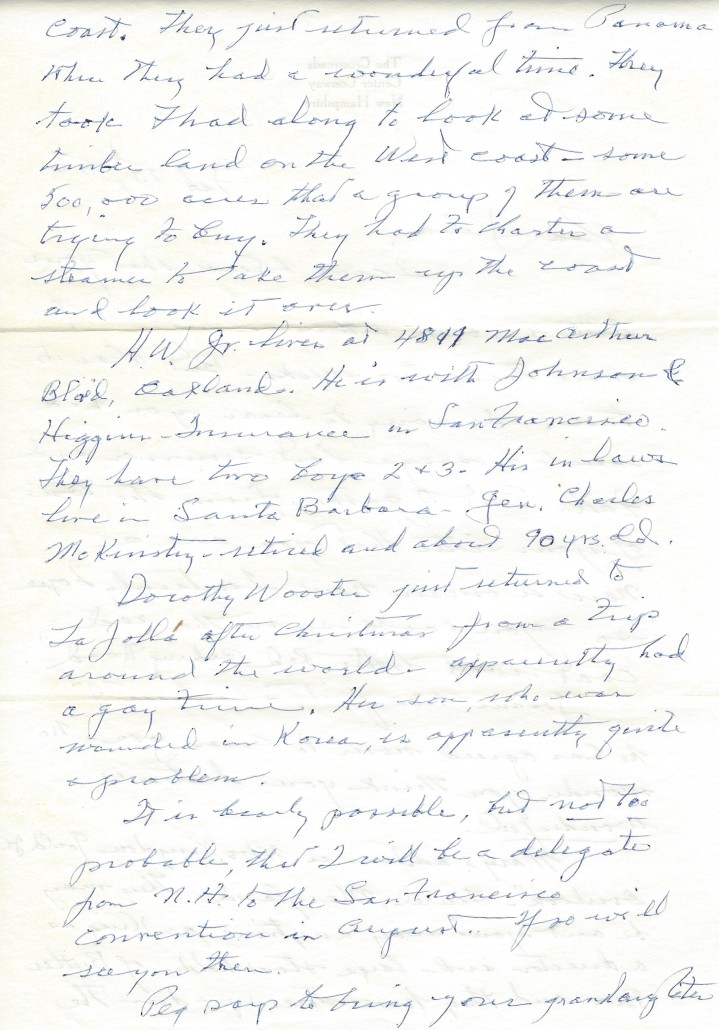 coast. They just returned from Panama
where they had a wonderful time. They
took Thad along to look at some
timber land on the West coast - some
500,000 acres that a group of them are
trying to buy. They had to charter a
steamer to take them up the coast
and look it over.
H.W. Jr. lives at 4899 MacArthur
Blvd, Oakland. He is with Johnson &
Higgins - Insurance in San Francisco.
They have two boys 2 + 3. His in laws
live in Santa Barbara - Gen. Charles
McKinstry - retired and about 90 yrs. old.
Dorothy Wooster just returned to
La Jolla after Christmas from a trip
around the world - apparently had
a gay time. Her son, who was
wounded in Korea, is apparently quite
a problem.
It is barely possible, but not too
probable, that I will be a delegate
from N.H. to the San Francisco
convention in August. If so we'll
see you then.
Peg says to bring your grandaughter
The Crossroads
Center Conway
New Hampshire